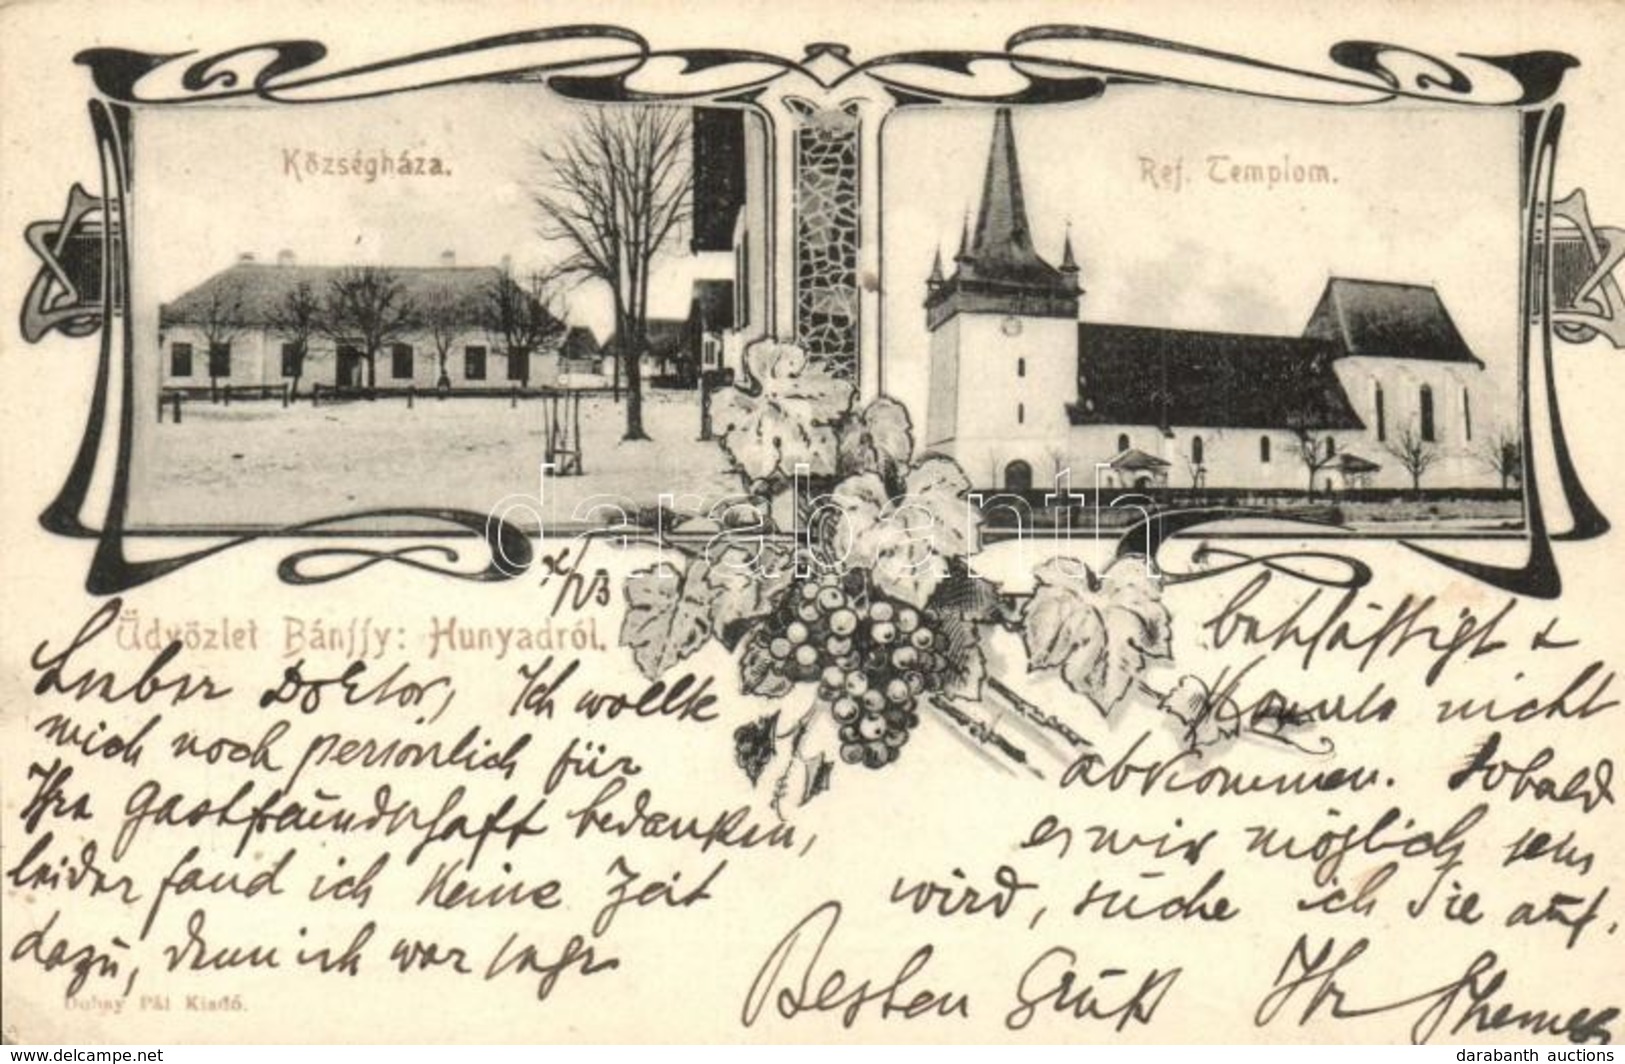 Községháza.
Ref. Templom.
darabanth
Üdvözlet Bánffy-Hunyadról.
X/23
Lieber Doktor, Ich wollte
mich noch persönlich für
Ihre Gastfreundschaft bedanken,
leider fand ich keine Zeit
dazu, denn ich war sehr
beschäftigt &
konnte nicht
abkommen. Sobald
es mir möglich sein
wird, suche ich Sie auf.
Besten Gruß Ihr
Dubay Pál Kiadó.
www.darabanth.com
darabanth auctions